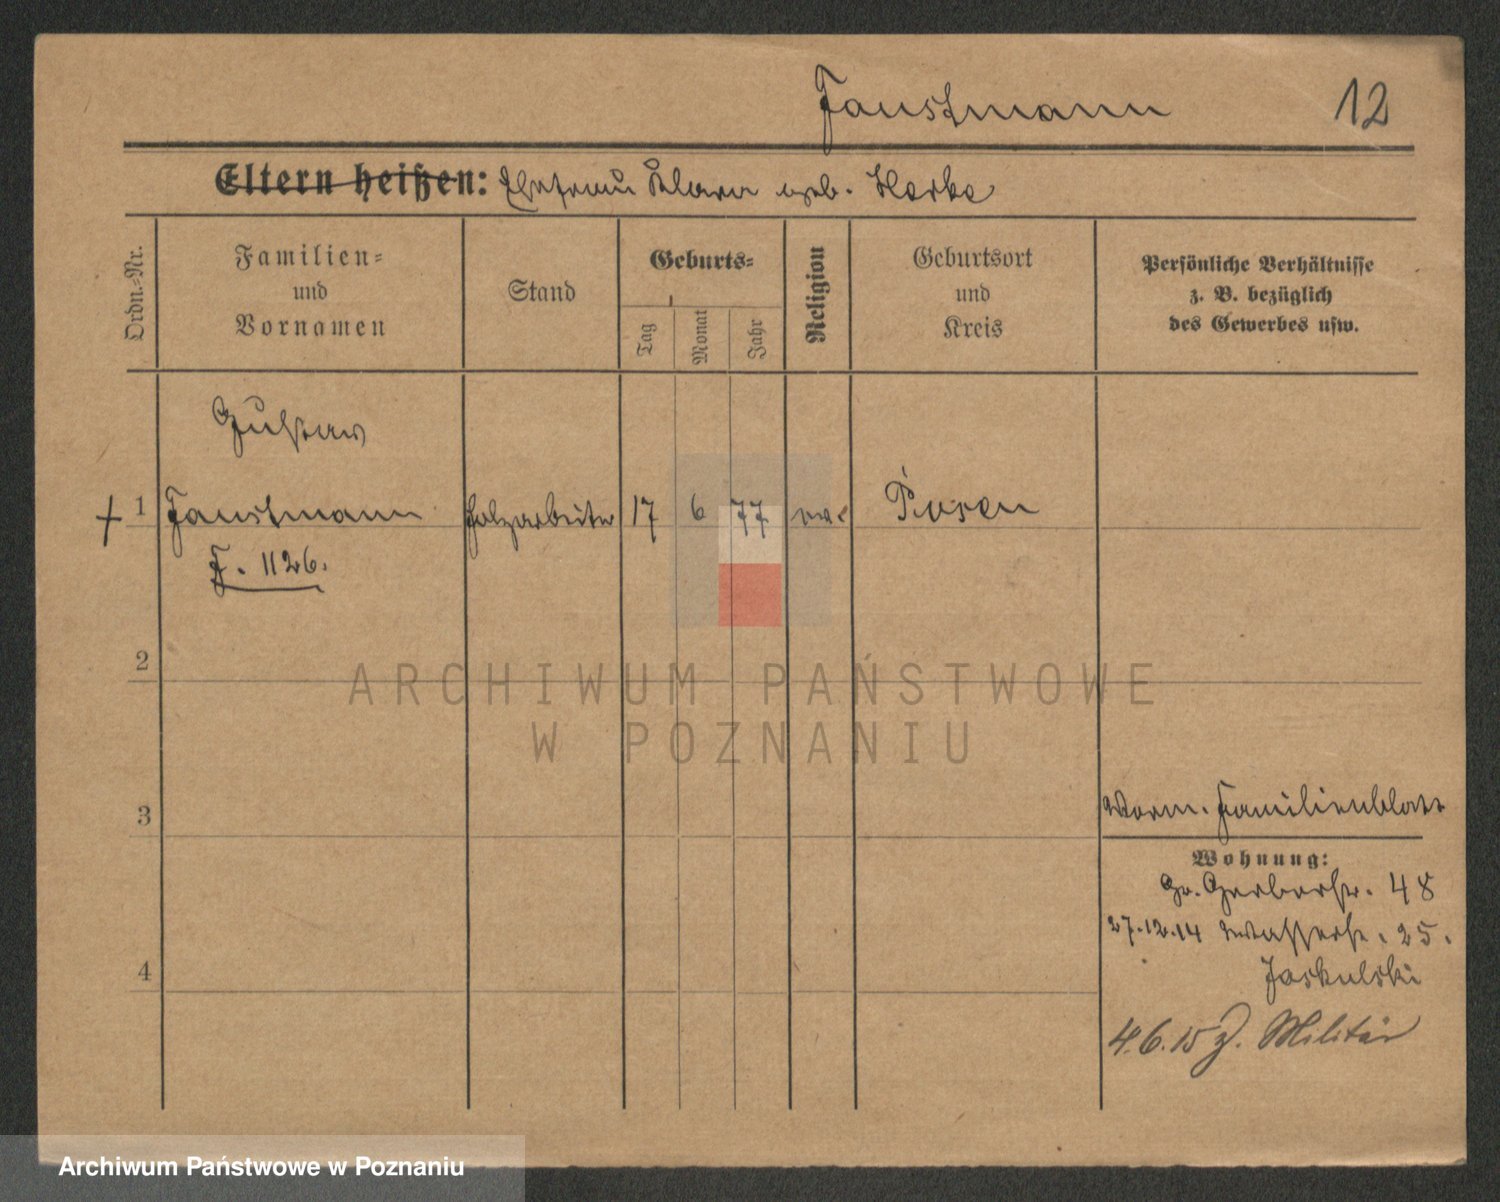 Faustmann 12
Eltern heißen: Ehefrau Klara geb. Harke
Ordn.-Nr.
Familien-
und
Vornamen
Stand
Geburts-
Tag
Monat
Jahr
Religion
Geburtsort
und
Kreis
Persönliche Verhältnisse
z. B. bezüglich
des Gewerbes usw.
Gustav
+ 1 Faustmann Holzarbeiter 17 6 77 Posen
F. 1126.
2
ARCHIWUM PAŃSTWOWE
W POZNANIU
3
Familienblatt
Wohnung:
Gr. Gerberstr. 48
27.12.14 Wasserstr. 25.
Jaskulski
4
4.6.15 z. Militär
Archiwum Państwowe w Poznaniu